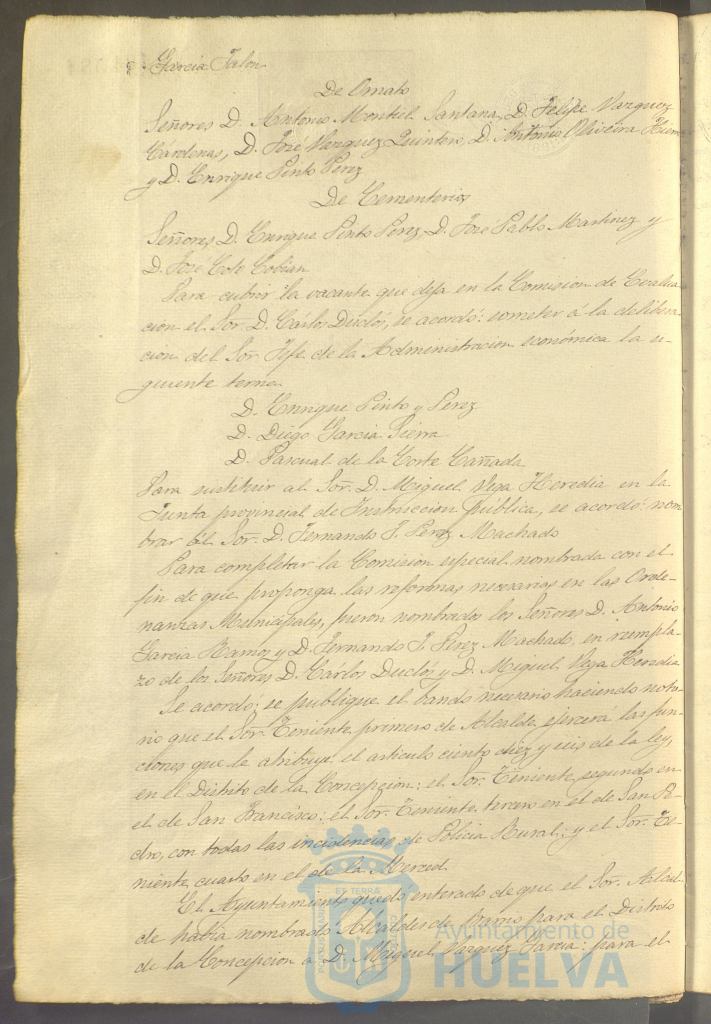 Garcia Talon
De Ornato
Señores D. Antonio Montiel Santana, D. Felipe Vazquez
Cárdenas, D. José Vazquez Quintero, D. Antonio Oliveira
y D. Enrique Pinto Perez
De Cementerios
Señores D. Enrique Pinto Perez, D. José Pablo Martinez y
D. José Coto Cobian
Para cubrir la vacante que deja en la Comision de Evalua-
cion el Sor. D. Carlos Duclós, se acordó: someter á la delibera-
cion del Sor. Jefe de la Administracion económica la si-
guiente terna
D. Enrique Pinto y Perez
D. Diego Garcia Sierra
D. Pascual de la Corte Cañada
Para sustituir al Sor. D. Miguel Vega Heredia en la
Junta provincial de Instruccion publica, se acordó: nom-
brar al Sor. D. Fernando J. Perez Machado
Para completar la Comision especial nombrada con el
fin de que proponga las reformas necesarias en las Orde-
nanzas Municipales, fueron nombrados los Señores D. Antonio
Garcia Ramos y D. Fernando J. Perez Machado, en reempla-
zo de los Señores D. Cárlos Duclós y D. Miguel Vega Heredia
Se acordó: se publique el bando necesario haciendo noto-
rio que el Sor. Teniente primero de Alcalde ejercerá las fun-
ciones que le atribuye el articulo ciento diez y seis de la ley,
en el Distrito de la Concepcion; el Sor. Teniente segundo en
el de San Francisco; el Sor. Teniente tercero en el de San Pe-
dro, con todas las incidencias de Policia Rural; y el Sor. Te-
niente cuarto en el de la Merced.
El Ayuntamiento quedó enterado de que el Sor. Alcal-
de habia nombrado Alcaldes de barrio para el Distrito
de la Concepcion a D. Miguel Vazquez Garcia: para el
Ayuntamiento de
HUELVA